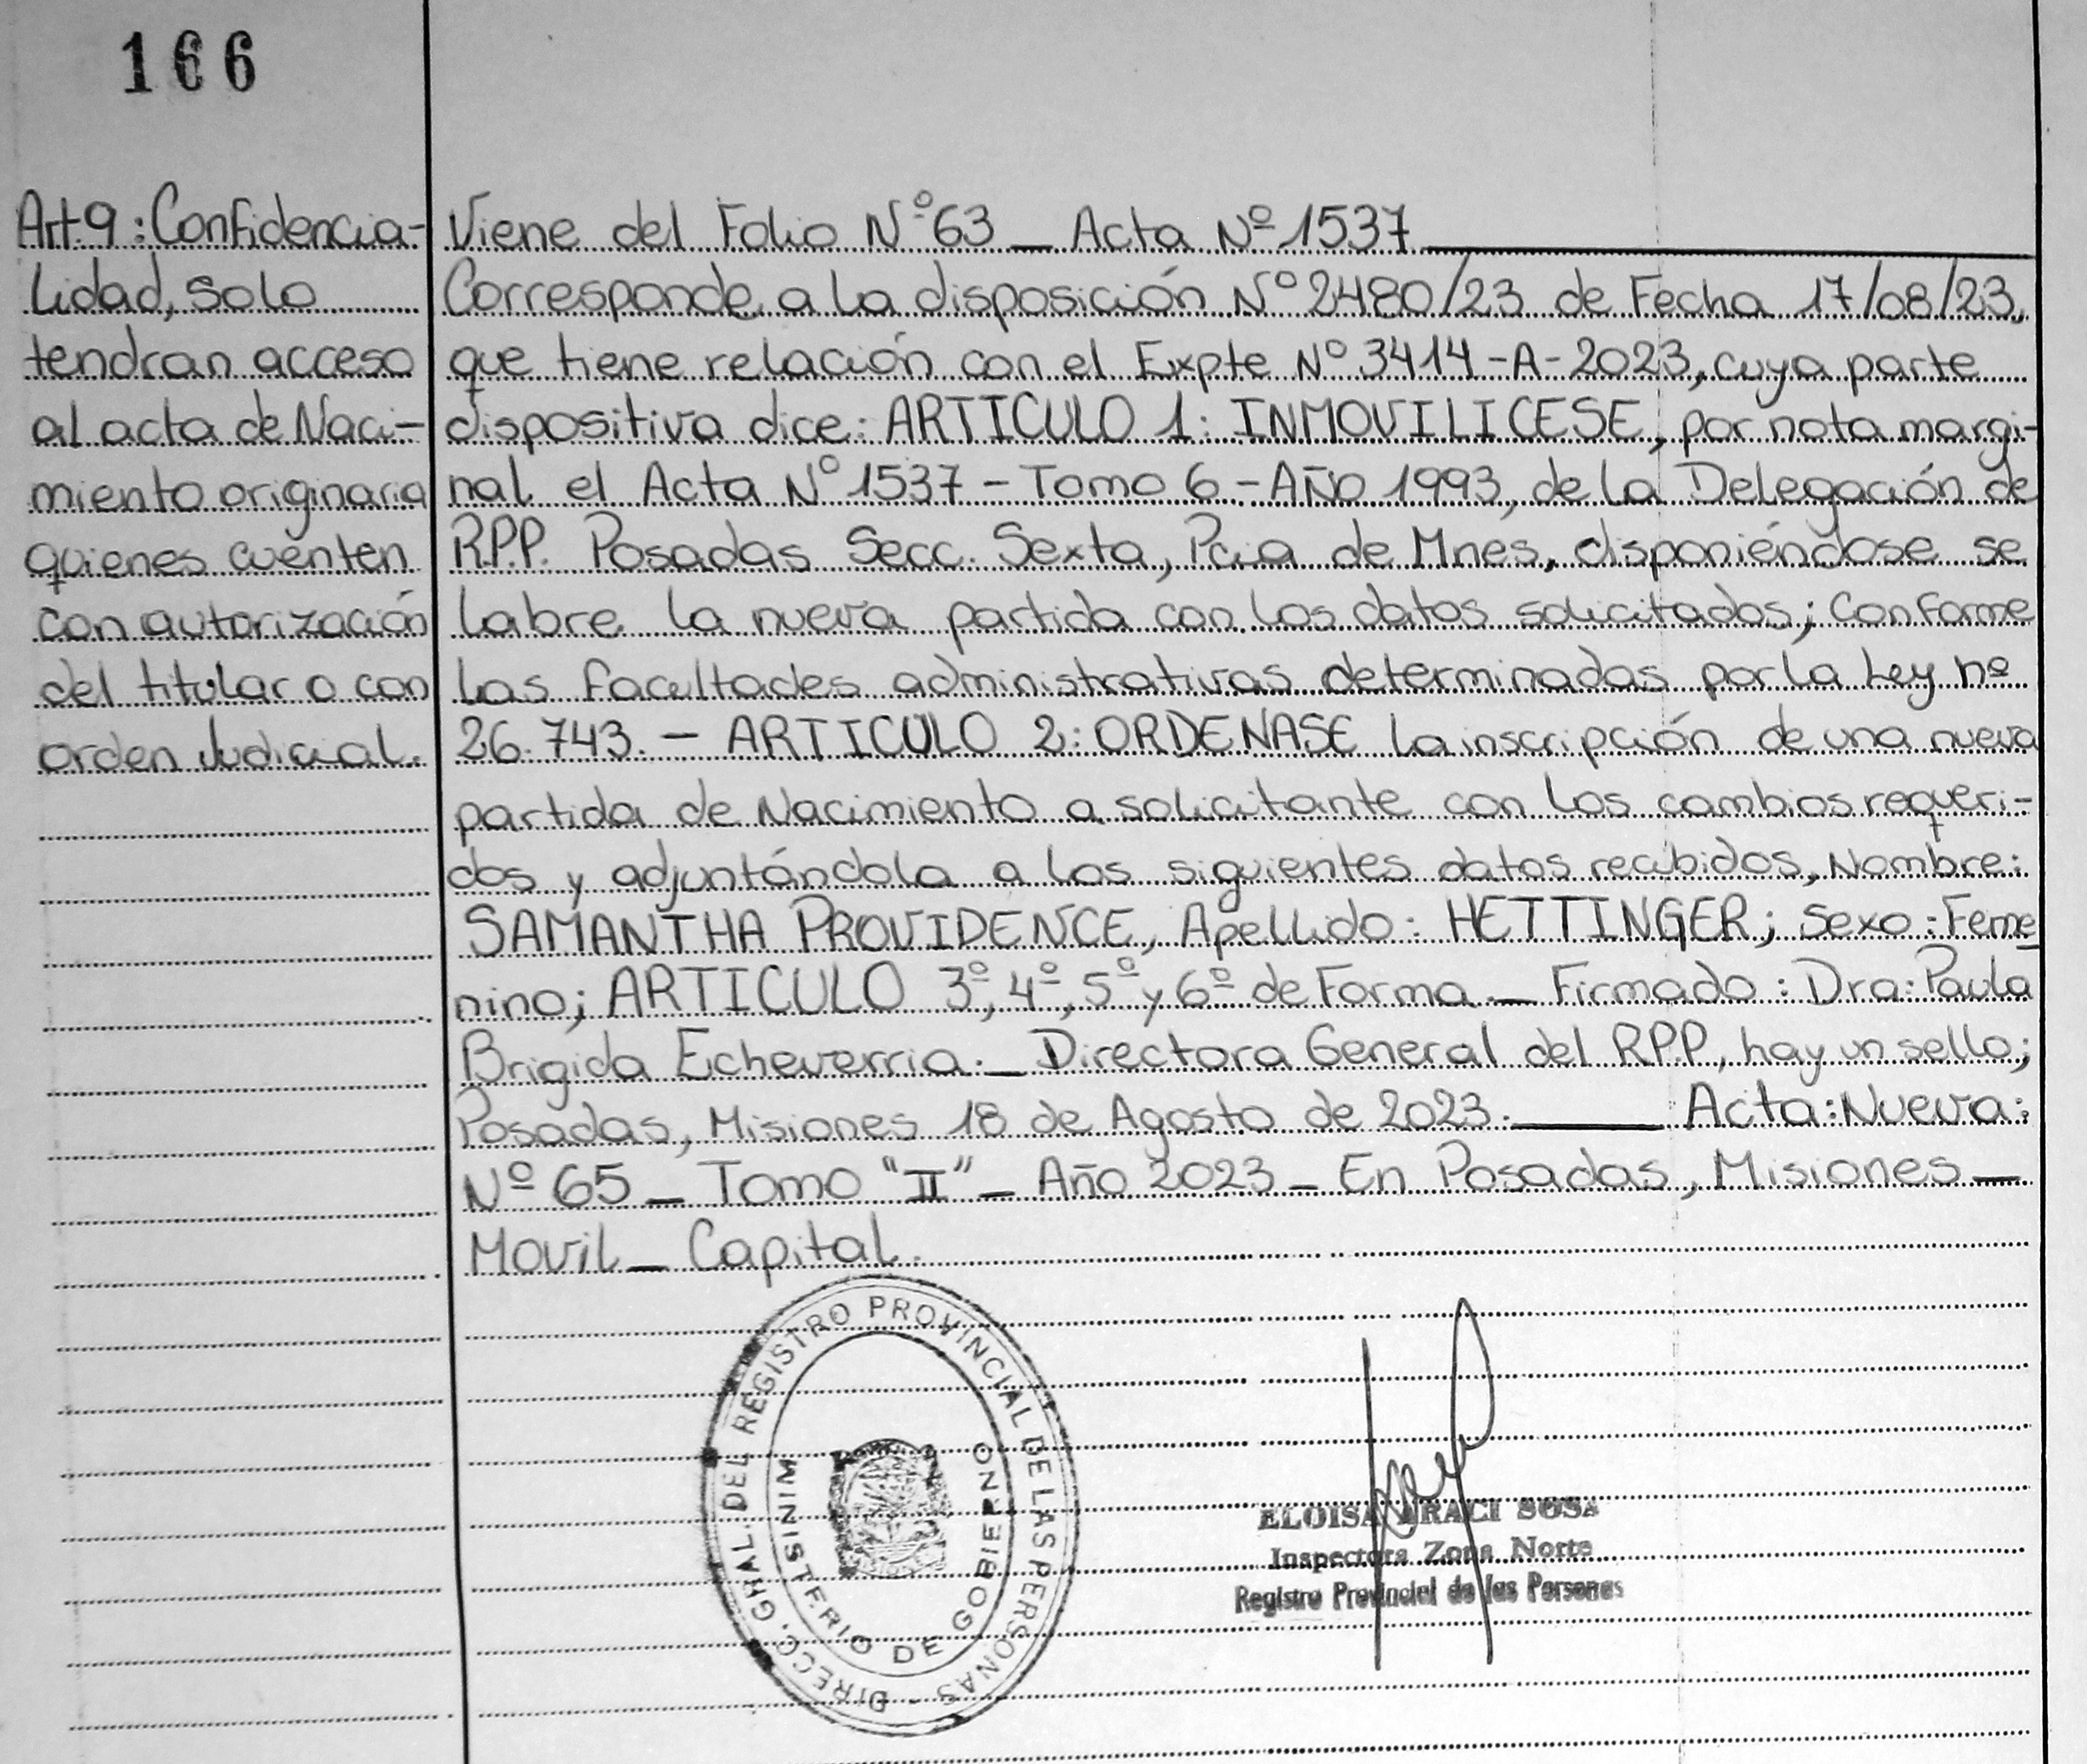 166
Art.9: Confidencia-
lidad, solo
tendran acceso
al acta de Naci-
miento originaria
quienes cuenten
con autorización
del titular o con
orden Judicial.
Viene del Folio Nº 63 _ Acta Nº 1537
Corresponde a la disposición Nº 2480/23 de Fecha 17/08/23,
que tiene relación con el Expte Nº 3414-A-2023, cuya parte
dispositiva dice: ARTICULO 1: INMOVILICESE, por nota margi-
nal el Acta Nº 1537 - Tomo 6 - AÑO 1993, de la Delegación de
R.P.P. Posadas Secc. Sexta, Pcia de Mnes, disponiéndose se
labre la nueva partida con los datos solicitados; Conforme
las facultades administrativas determinadas por la Ley nº
26.743. - ARTICULO 2: ORDENASE la inscripción de una nueva
partida de Nacimiento a solicitante con los cambios requeri-
dos y adjuntándola a los siguientes datos recibidos, Nombre:
SAMANTHA PROVIDENCE, Apellido: HETTINGER; Sexo: Feme
nino; ARTICULO 3º, 4º, 5º y 6º de Forma _ Firmado: Dra: Paula
Brigida Echeverria. _ Directora General del R.P.P, hay un sello;
Posadas, Misiones 18 de Agosto de 2023. ____ Acta: Nueva:
Nº 65 _ Tomo "II" _ Año 2023 _ En Posadas, Misiones _
Movil _ Capital.
DIRECC. GRAL. DEL REGISTRO PROVINCIAL DE LAS PERSONAS -
MINISTERIO DE GOBIERNO
ELOISA IRACI SOSA
Inspectora Zona Norte
Registro Provincial de las Personas